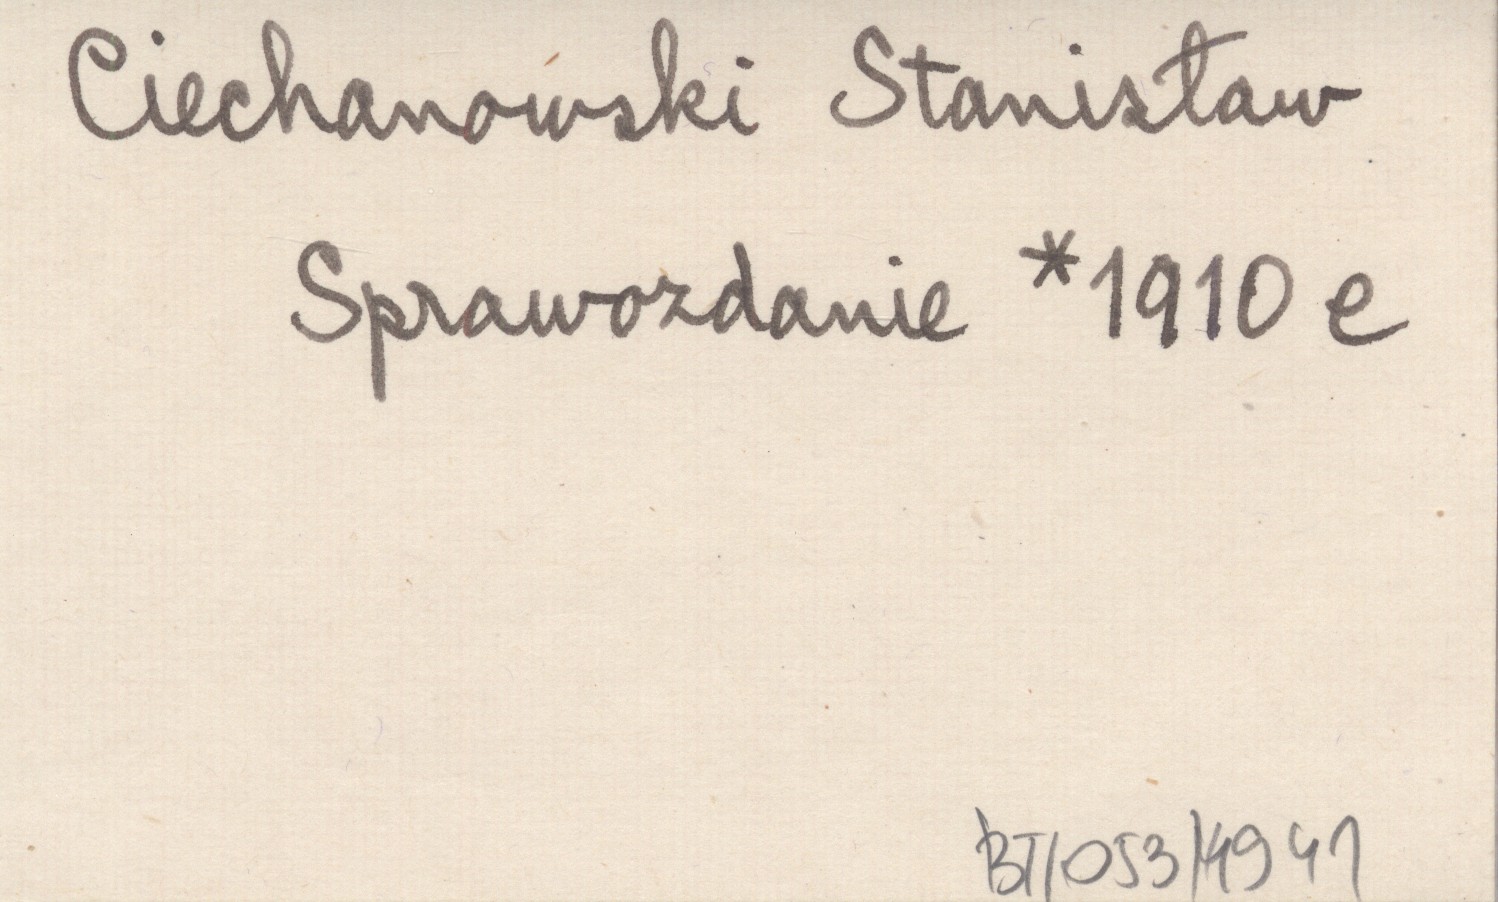 Ciechanowski Stanisław
Sprawozdanie *1910 e
BT/053/4941